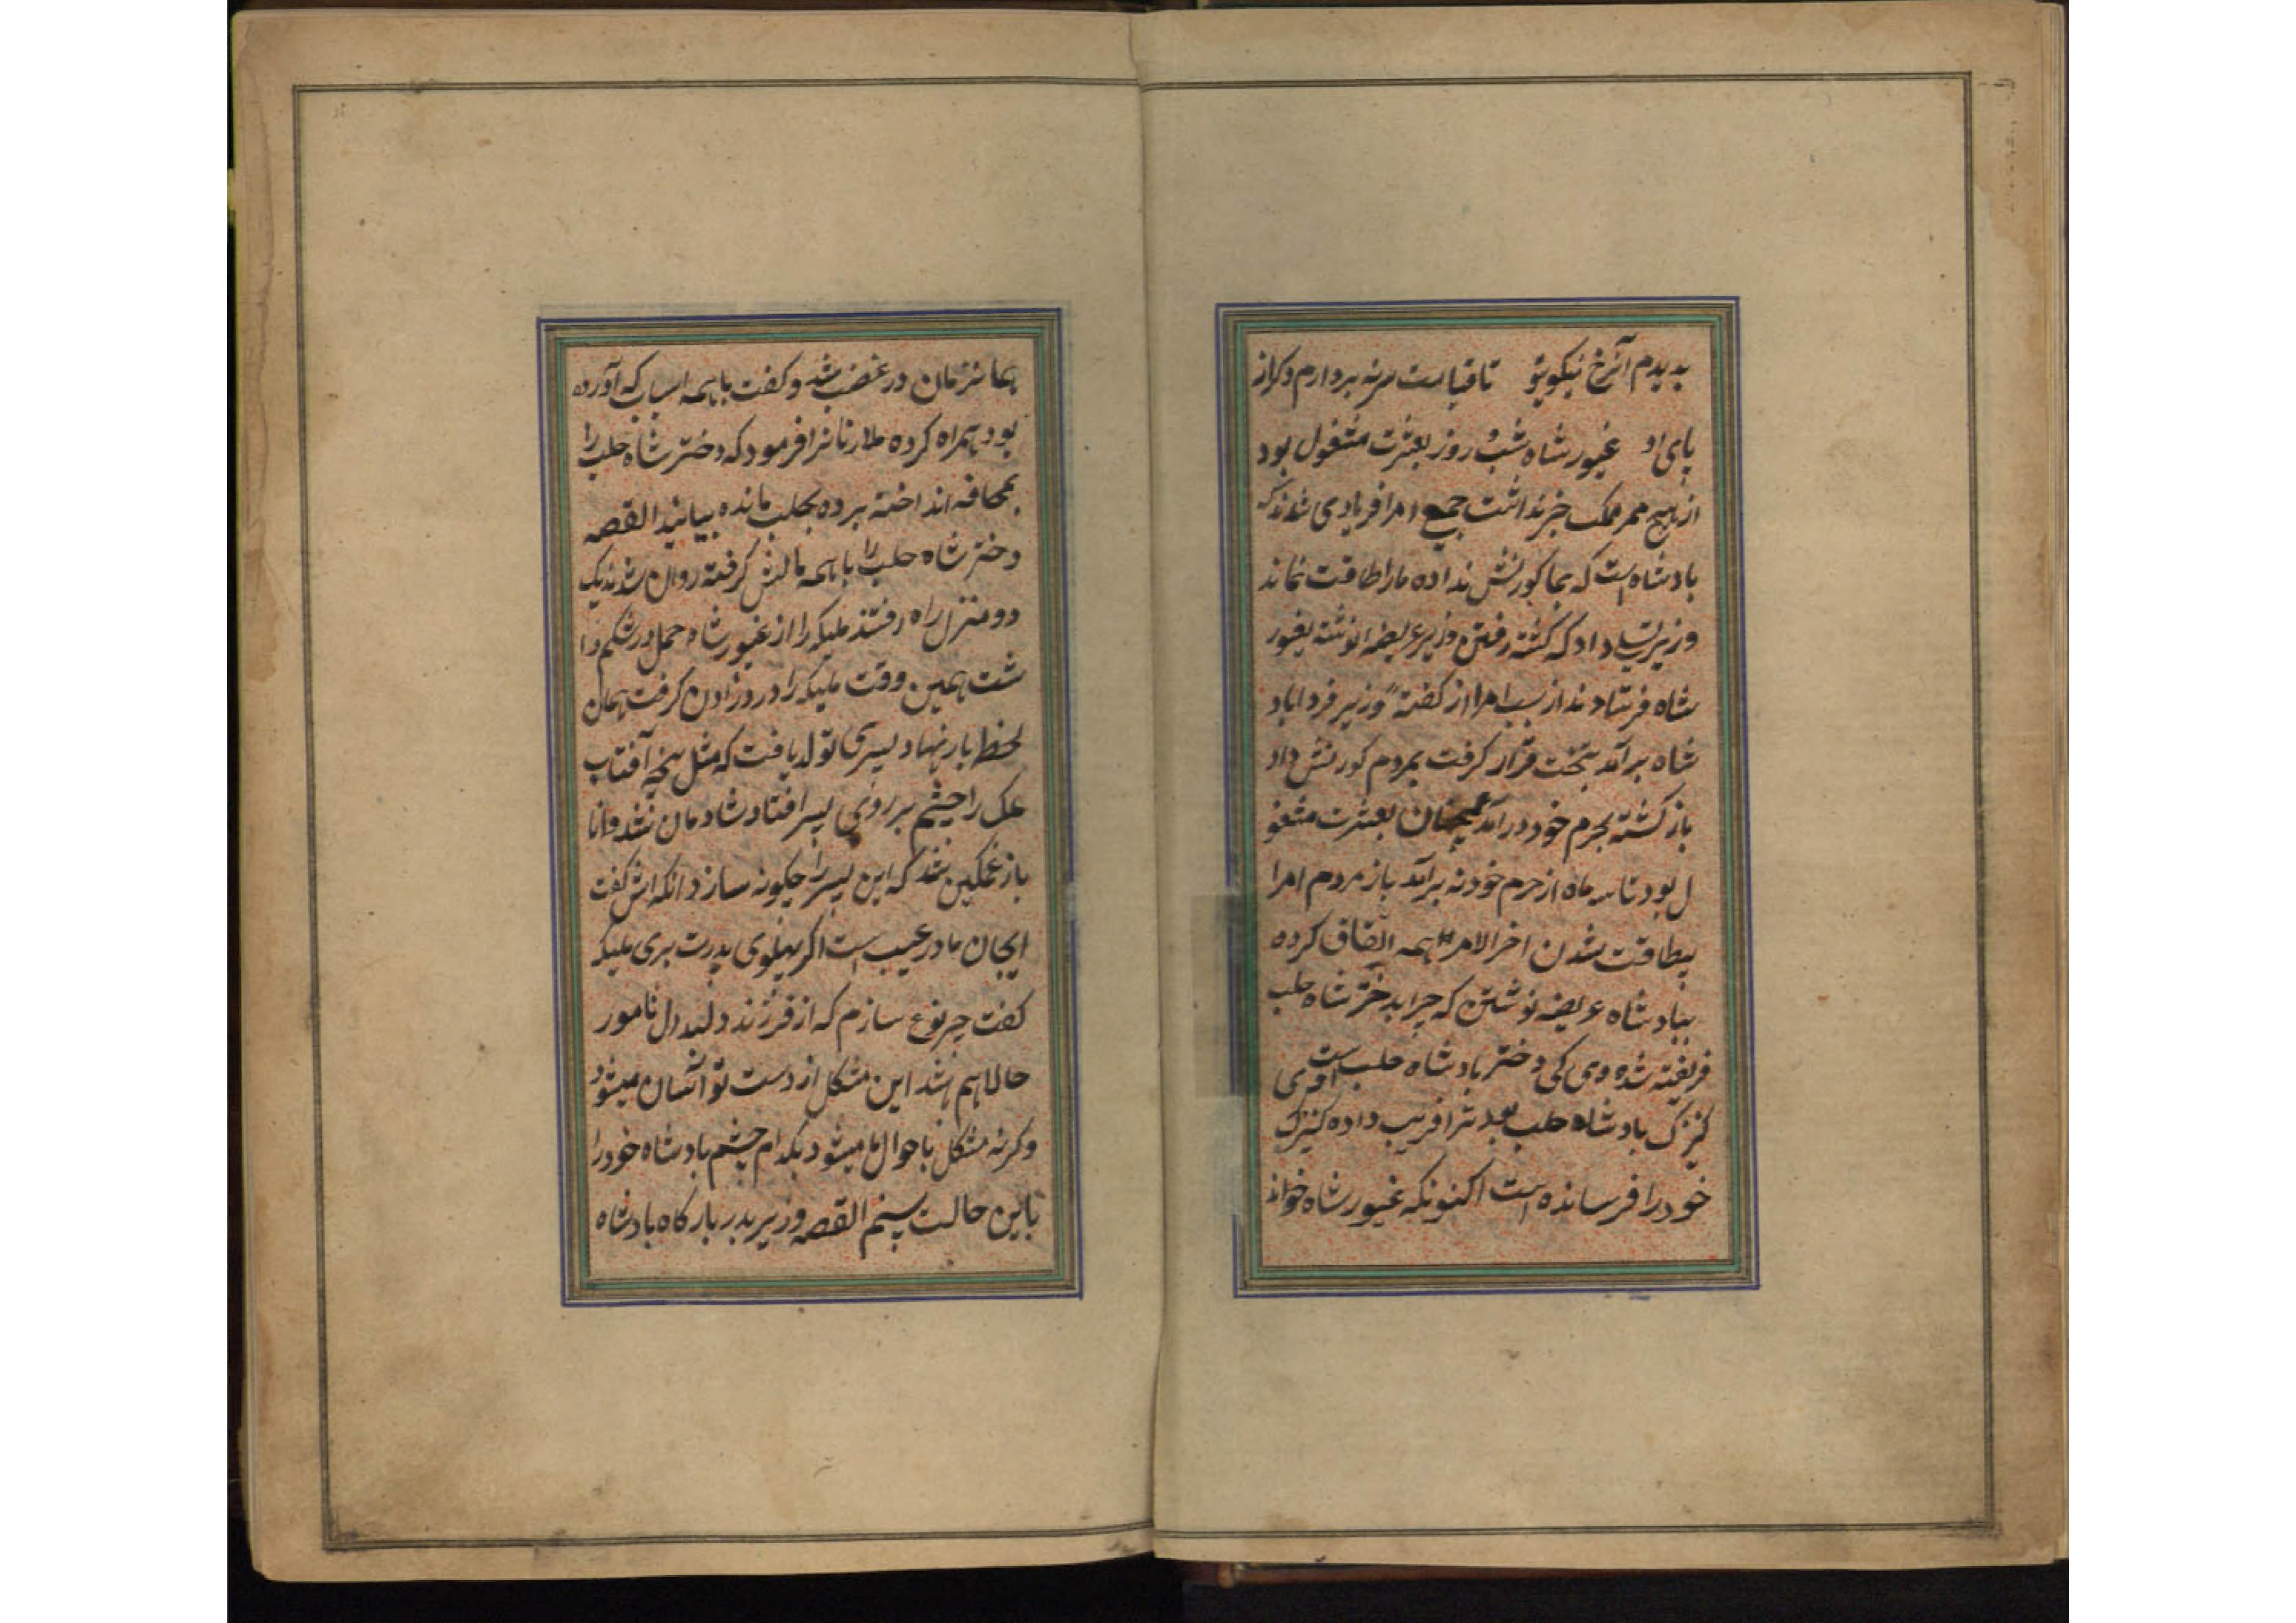 بدیدم آنرخ نیکویتو تا قیامت سر نه بردارم دکراز
پای او غیور شاه شب و روز بعشرت مشغول بود
از هیچ ممر ملک خبر نداشت جمیع امرا فریادی شدند که
بادشاه است که بما کورنش نداده مارا طاقت نماند
وزیر داد که کشته رفتن وزیر عریضه نوشته بغیور
شاه فرستادند از سبب امرا از کفته وزیر فردا باد
شاه برآمد بتخت قرار کرفت بمردم کورنش داد
باز کشته بحرم خود درآمد همچنان بعشرت مشغو
ل بود تا سه ماه از حرم خود نه برآمد باز مردم امرا
بیطاقت شدن اخر الامر همه اتفاق کرده
ببادشاه عریضه نوشتن که چرا بدختر شاه حلب
فریفته شده وی کی دختر بادشاه حلب است
کنیزک بادشاه حلب فریب داده کنیزک
خود را فرسانده است اکنونکه غیور شاه خواند
همانزمان در غضب شد و کفت با همه اسباب که آورده
بود همراه کرده ملازنانرا فرمود که دختر شاه حلب را
بمحافه انداخته برده بحلب مانده بیائید القصه
دختر شاه حلب را با همه مالش کرفته روان شدند یک
دو منزل راه رفتند ملیکه را از غیور شاه حمل در شکم دا
شت همین وقت ملیکه را درد زادن کرفت همان
لحظ بار نهاد پسری تولد یافت که مثل پنجه آفتاب
ملک را چشم بر روی پسر افتاد شادمان شد و انا
باز غمکین شد که این پسر را چکونه سازد انکه اش کفت
ایجان مادر عیب است اکر پهلوی پدرت بری ملیکه
کفت چر نوع سازم که از فرزند دلبند دل نامور
حالا هم شد این مشکل از دست تو آسان میشود
وکرنه مشکل باحوال ما میشود بکدام چشم بادشاه خود را
باین حالت بینم القصه وزیر بدر بارکاه بادشاه